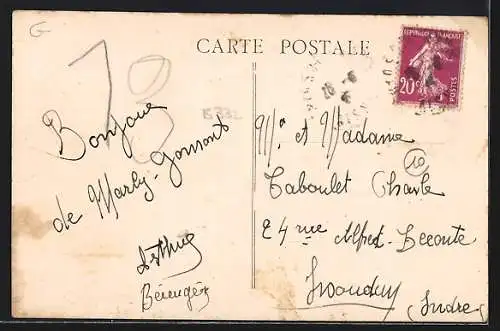 G
13
CARTE POSTALE
REPUBLIQUE FRANÇAISE
20c
POSTES
Bonjour
de Marly-Gomont
Bérenger
Mr et Madame
Taboulet Charle
24 rue Alfred-Lecoute
Issoudun
(Indre)
10